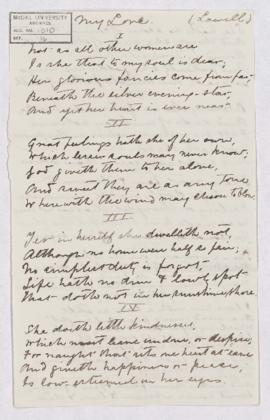 McGILL UNIVERSITY
ARCHIVES
ACC. NO.
REF.
My Love. (Lowell)
I
Not as all other women are
Is she that to my soul is dear;
Her glorious fancies come from far
Beneath the silver evening-star,
And yet her heart is ever near.
II
Great feelings hath she of her own,
Which lesser souls may never know;
God giveth them to her alone,
And sweet they are as any tone
Wherewith the wind may choose to blow.
III
Yet in herself she dwelleth not,
Although no home were half so fair;
No simplest duty is forgot,
Life hath no dim & lowly spot
That doth not in her sunshine share.
IV
She doeth little kindnesses,
Which most leave undone, or despise,
For naught that sets one heart at ease
And giveth happiness or peace,
Is low-esteemed in her eyes.